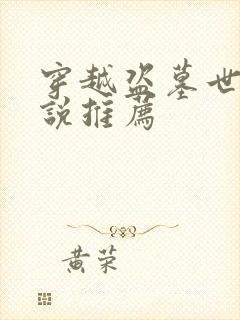 穿越盗墓世
說推薦
黄荣